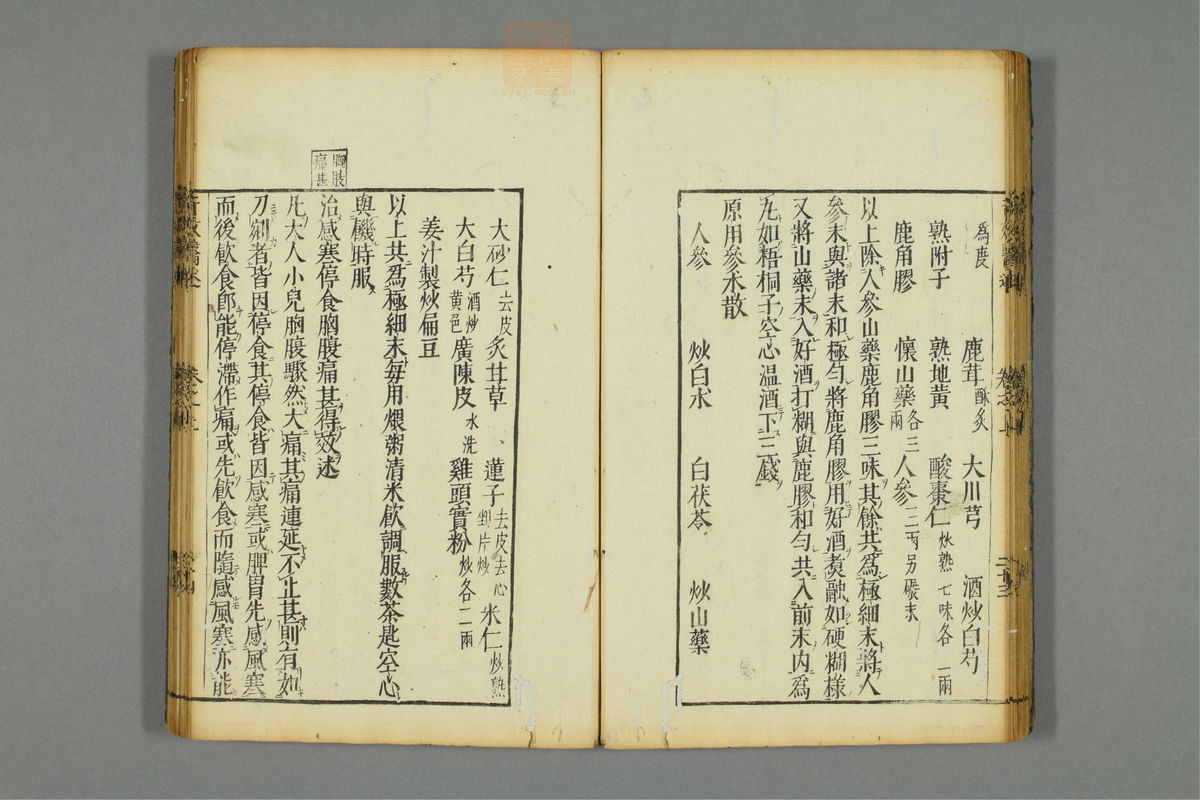 爲度　鹿茸酥炙　大川芎　酒炒白芍
熟附子　熟地黃　酸棗仁炒熟七味各一兩
鹿角膠　懷山藥各三兩　人參二兩另礙末
以上除人參山藥鹿角膠三味其餘共爲極細末將人
參末與諸末和極勻將鹿角膠用好酒煑融如硬糊樣
又將山藥末入好酒打糊與鹿膠和勻共入前末內爲
丸如梧桐子空心温酒下三錢
原用參朮散
人參　炒白朮　白茯苓　炒山藥
大砂仁去皮　炙甘草　蓮子去皮去心剉片炒　米仁炒熟
大白芍酒炒黄色　廣陳皮水洗　雞頭實粉炒各二兩
姜汁製炒扁豆
以上共爲極細末每用煨粥清米飲調服數茶匙空心
與機時服
胸腹痛甚
治感寒停食胸腹痛甚得效述
凡大人小兒胸腹驟然大痛其痛連延不止甚則有如
刀剜者皆因停食其停食皆因感寒或脾胃先感風寒
而後飲食卽能停滯作痛或先飲食而隨感風寒亦能